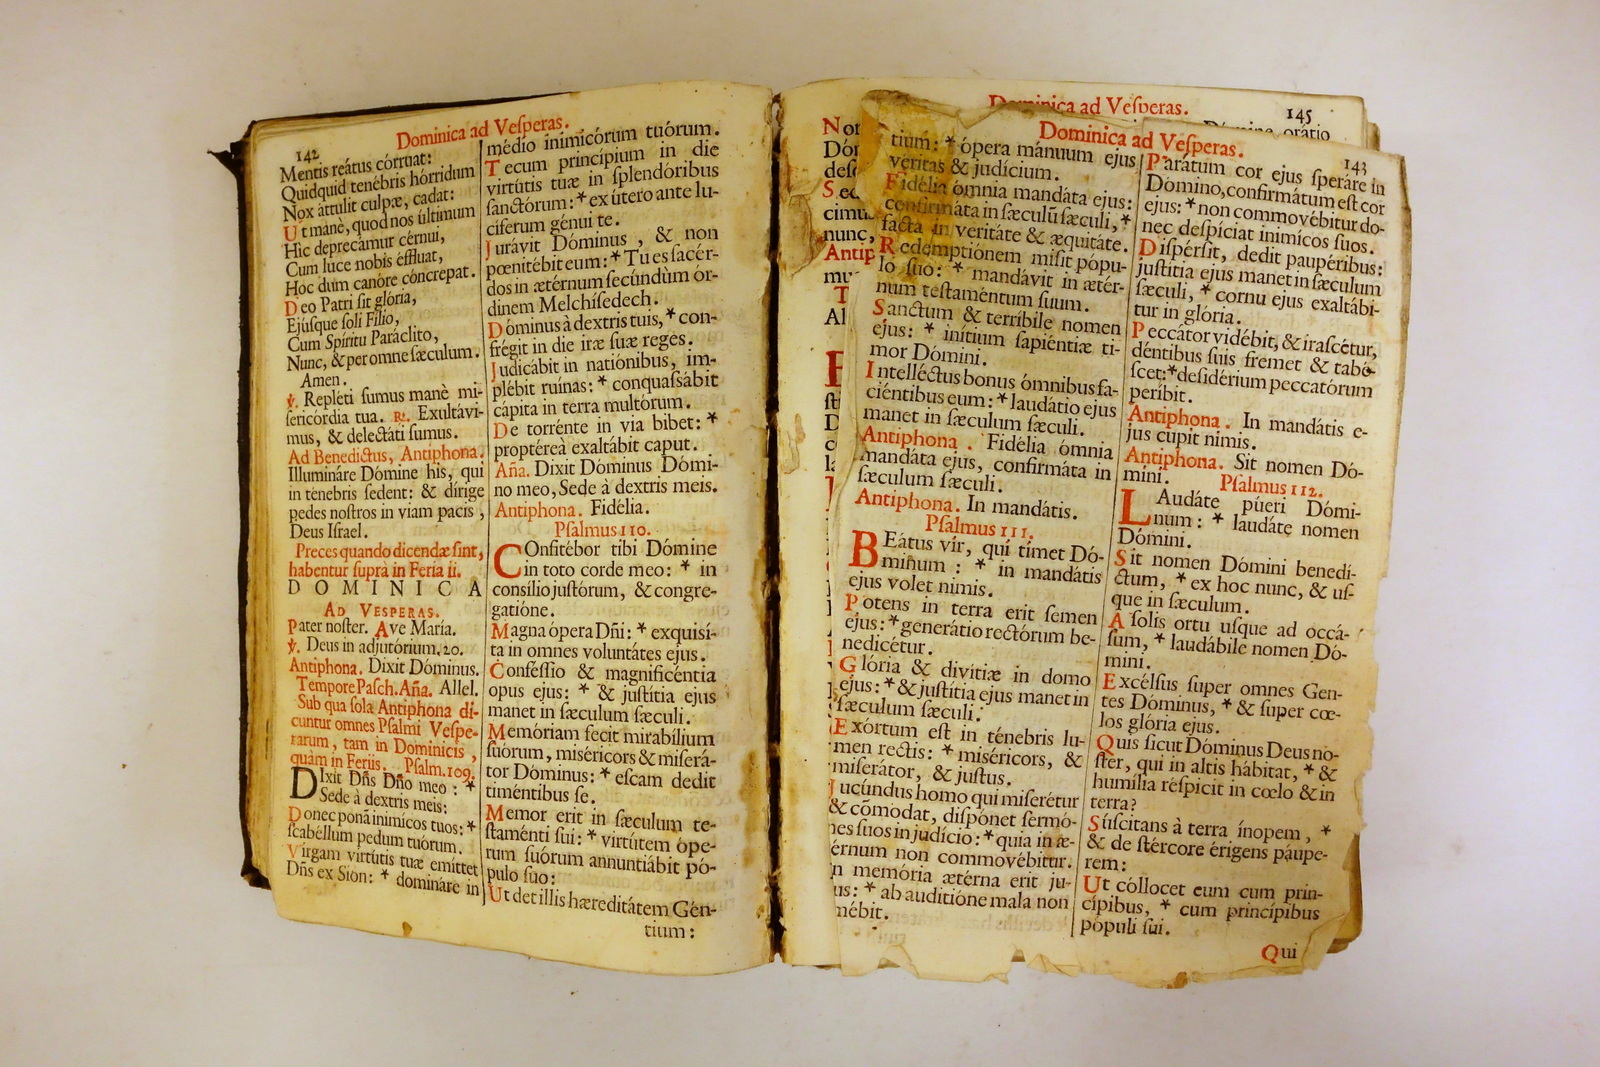 142
Dominica ad Veſperas.
Mentis reátus córruat:
Quidquid tenébris hórridum
Nox áttulit culpæ, cadat:
Ut manè, quod nos últimum
Hîc deprecámur cérnui,
Cum luce nobis éffluat,
Hoc dum canóre cóncrepat.
Deo Patri ſit glória,
Ejúſque ſoli Filio,
Cum Spíritu Paráclito,
Nunc, & per omne ſæculum.
Amen.
℣. Repléti ſumus manè mi-
ſericórdia tua. ℟. Exultávi-
mus, & delectáti ſumus.
Ad Benedictus, Antiphona.
Illumináre Dómine his, qui
in ténebris ſedent: & dírige
pedes noſtros in viam pacis,
Deus Iſrael.
Preces quando dicendæ ſint,
habentur ſuprà in Feria ii.
DOMINICA
AD VESPERAS.
Pater noſter. Ave María.
℣. Deus in adjutórium. 20.
Antiphona. Dixit Dóminus.
Tempore Paſch. Aña. Allel.
Sub qua ſola Antiphona di-
cuntur omnes Pſalmi Veſpe-
rarum, tam in Dominicis,
quàm in Feriis. Pſalm. 109.
DIxit Dñs Dño meo: *
Sede à dextris meis:
Donec ponã inimícos tuos: *
ſcabéllum pedum tuórum.
Virgam virtútis tuæ emíttet
Dñs ex Sion: * domináre in
médio inimicórum tuórum.
Tecum princípium in die
virtútis tuæ in ſplendóribus
ſanctórum: * ex útero ante lu-
cíferum génui te.
Jurávit Dóminus, & non
pœnitébit eum: * Tu es ſacér-
dos in ætérnum ſecúndùm ór-
dinem Melchíſedech.
Dóminus à dextris tuis, * con-
frégit in die iræ ſuæ reges.
Judicábit in natiónibus, im-
plébit ruínas: * conquaſſábit
cápita in terra multórum.
De torrénte in via bibet: *
proptéreà exaltábit caput.
Aña. Dixit Dóminus Dómi-
no meo, Sede à dextris meis.
Antiphona. Fidélia.
Pſalmus 110.
COnfitébor tibi Dómine
in toto corde meo: * in
consílio juſtórum, & congre-
gatióne.
Magna ópera Dñi: * exquisí-
ta in omnes voluntátes ejus.
Conféſſio & magnificéntia
opus ejus: * & juſtítia ejus
manet in ſæculum ſæculi.
Memóriam fecit mirabílium
ſuórum, miséricors & miſerá-
tor Dóminus: * eſcam dedit
timéntibus ſe.
Memor erit in ſæculum te-
ſtaménti ſui: * virtútem ópe-
rum ſuórum annuntiábit pó-
pulo ſuo:
Ut det illis hæreditátem Gén-
tium:
Dominica ad Veſperas.
145
Dómine orátio
Dominica ad Veſperas.
143
tium: * ópera mánuum ejus
véritas & judícium.
Fidélia ómnia mandáta ejus:
confirmáta in ſæculũ ſæculi, *
facta in veritáte & æquitáte.
Redemptiónem miſit pópu-
lo ſuo: * mandávit in ætér-
num teſtaméntum ſuum.
Sanctum & terríbile nomen
ejus: * inítium ſapiéntiæ ti-
mor Dómini.
Intelléctus bonus ómnibus fa-
ciéntibus eum: * laudátio ejus
manet in ſæculum ſæculi.
Antiphona. Fidélia ómnia
mandáta ejus, confirmáta in
ſæculum ſæculi.
Antiphona. In mandátis.
Pſalmus 111.
BEátus vir, qui timet Dó-
minum: * in mandátis
ejus volet nimis.
Potens in terra erit ſemen
ejus: * generátio rectórum be-
nedicétur.
Glória & divítiæ in domo
ejus: * & juſtítia ejus manet in
ſæculum ſæculi.
Exórtum eſt in ténebris lu-
men rectis: * miséricors, &
miſerátor, & juſtus.
Jucúndus homo qui miſerétur
& cómodat, diſpónet ſermó-
nes ſuos in judício: * quia in æ-
érnum non commovébitur.
n memória ætérna erit ju-
us: * ab auditióne mala non
mébit.
Parátum cor ejus ſperáre in
Dómino, confirmátum eſt cor
ejus: * non commovébitur do-
nec deſpíciat inimícos ſuos.
Diſpérſit, dedit paupéribus:
juſtítia ejus manet in ſæculum
ſæculi, * cornu ejus exaltábi-
tur in glória.
Peccátor vidébit, & iraſcétur,
déntibus ſuis fremet & tabé-
ſcet: * deſidérium peccatórum
períbit.
Antiphona. In mandátis e-
jus cupit nimis.
Antiphona. Sit nomen Dó-
mini.
Pſalmus 112.
LAudáte púeri Dómi-
num: * laudáte nomen
Dómini.
Sit nomen Dómini benedí-
ctum, * ex hoc nunc, & uſ-
que in ſæculum.
A ſolis ortu uſque ad occá-
ſum, * laudábile nomen Dó-
mini.
Excélſus ſuper omnes Gen-
tes Dóminus, * & ſuper cœ-
los glória ejus.
Quis ſicut Dóminus Deus no-
ſter, qui in altis hábitat, * &
humília réſpicit in cœlo & in
terra?
Súſcitans à terra ínopem, *
& de ſtércore érigens páupe-
rem:
Ut cóllocet eum cum prin-
cípibus, * cum princípibus
pópuli ſui.
Qui